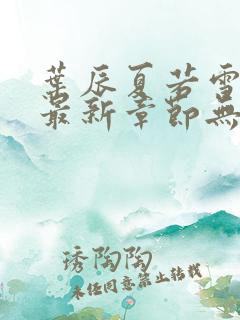 葉辰夏若雪
最新章節無
琇陶陶
未经同意禁止转载